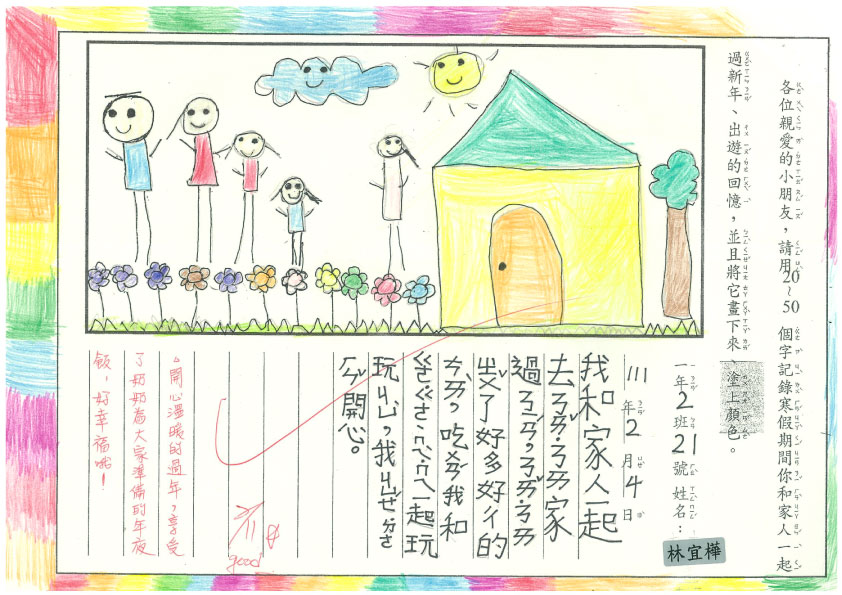 各位親愛的小朋友，請用20~50個字記錄寒假期間你和家人一起
過新年、出遊的回憶，並且將它畫下來、塗上顏色。
一年2班21號 姓名：林宜樺
111年2月4日
我和家人一起
去ㄋㄞˇㄋㄞ家
過ㄋㄧㄢˊ，ㄋㄞˇㄋㄞ
ㄓㄨˇ了好多好ㄔ的
ㄘㄞˋ，吃 我和
一起玩
玩ㄐㄩˋ，我ㄐㄩㄝˊㄉㄜ
ㄏㄣˇ開心。
開心溫暖的過年，享受
了奶奶為大家準備的年夜
飯，好幸福哦！
2/11
good